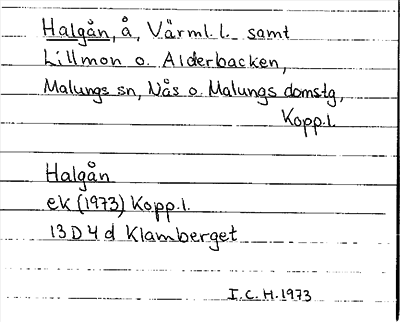 Halgån, å, Värml.l. samt
Lillmon o. Alderbacken,
Malungs sn, Nås o. Malungs domstg,
Kopp.l.
Halgån
ek (1973) Kopp.l.
13 D 4 d Klamberget
I.C.H. 1973